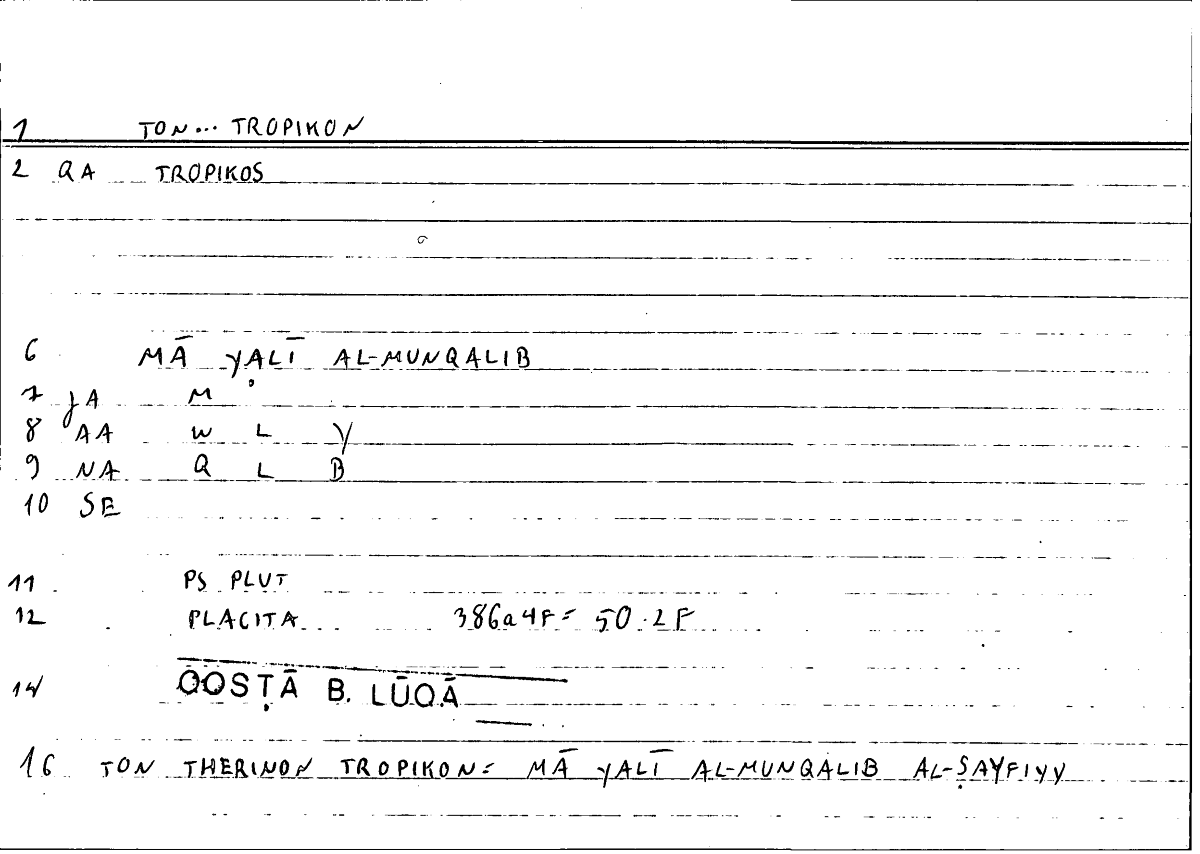 1 TON... TROPIKON
2 QA TROPIKOS
6 MĀ YALĪ AL-MUNQALIB
7 JA M
8 AA W L Y
9 NA Q L B
10 SE
11 PS PLUT
12 PLACITA 386a4F= 50.2F
14 QOSṬĀ B. LŪQĀ
16 TON THERINON TROPIKON= MĀ YALĪ AL-MUNQALIB AL-ṢAYFIYY